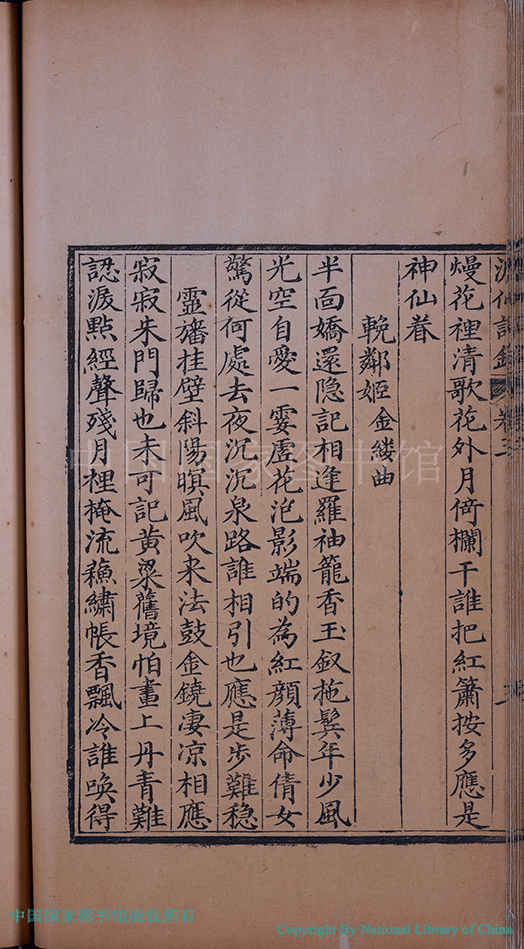 卷三
熳花裡清歌花外月倚欄干誰把紅簫按多應是
神仙眷
輓鄰姬金縷曲
半面嬌還隐記相逢羅袖籠香玉釵拖鬓年少風
光空自愛一霎曇花泡影端的為紅顔薄命倩女
驚從何處去夜沉沉泉路誰相引也應是步難穏
靈旛挂壁斜陽暝風吹来法鼓金鐃凄凉相應
寂寂朱門歸也未可記黄粱舊境怕畫上丹青難
認淚點經聲殘月裡掩流蘓繡帳香飄冷誰喚得
中国国家图书馆
中国国家图书馆版权所有
Copyright By National Library of China